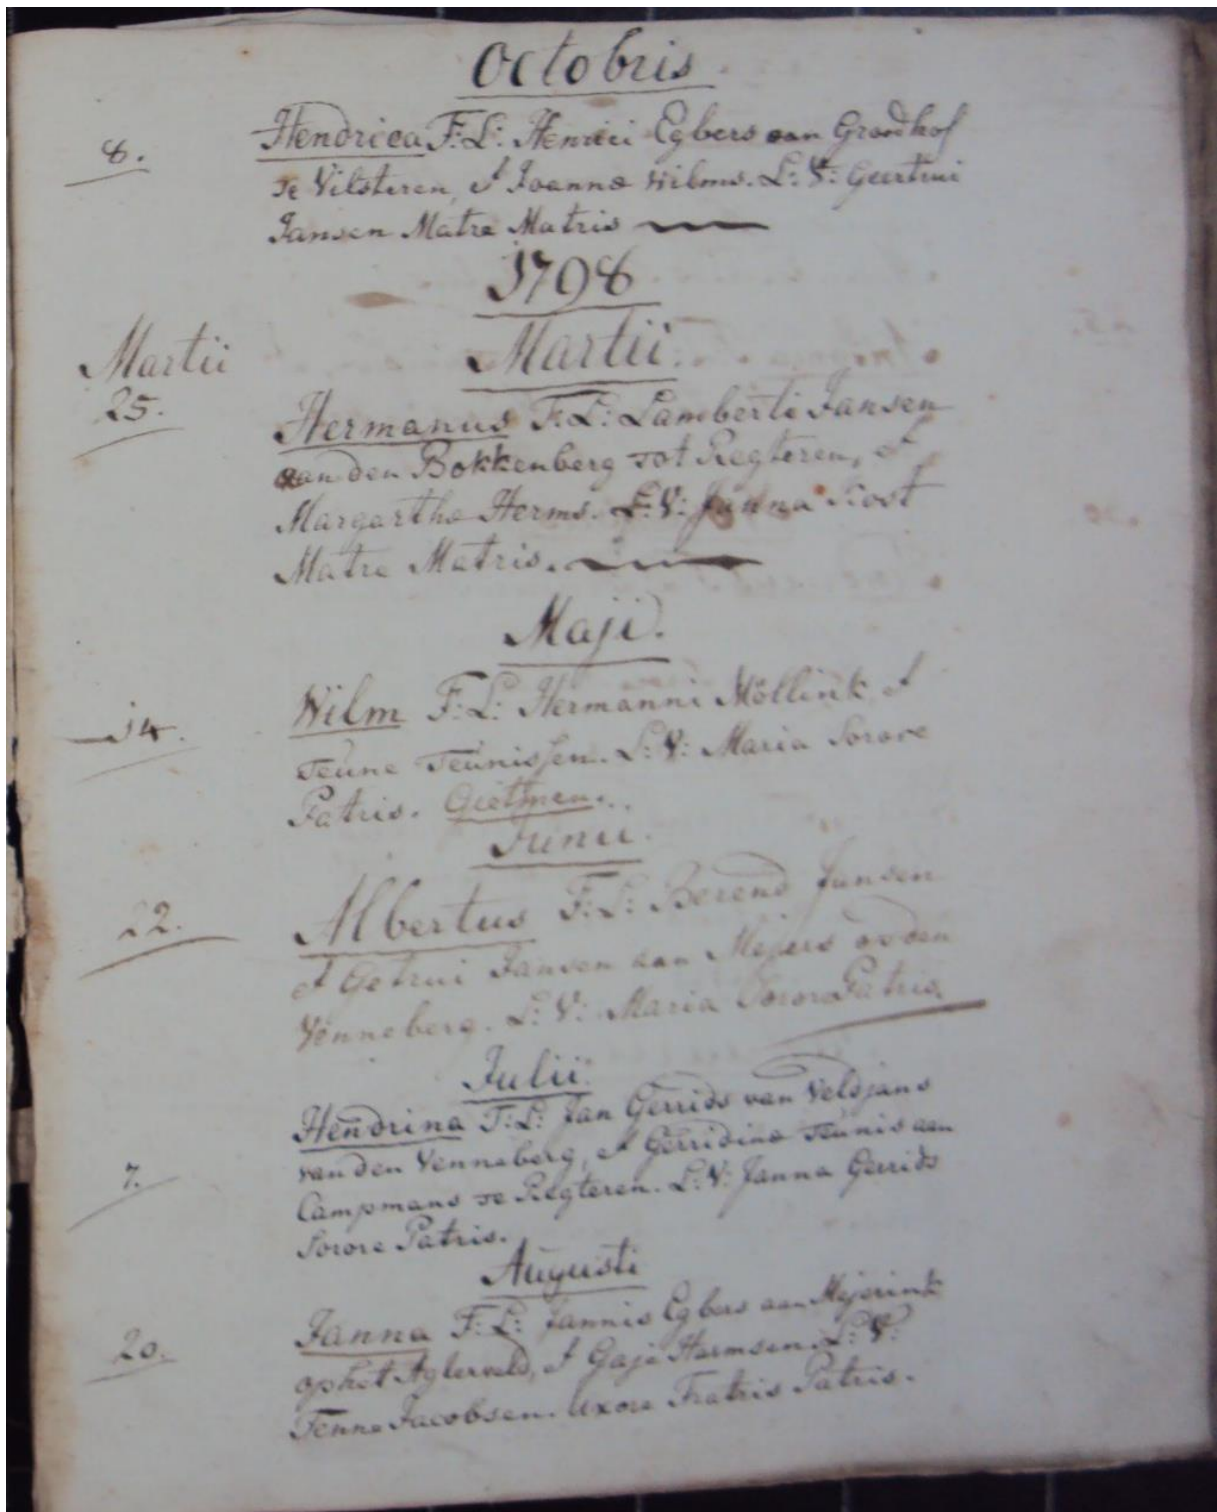 Octobris
8. Hendrica F: L: Henrici Egbers van Groodhof
te Vilsteren, et Joannæ Wilms. L: V: Geertrui
Jansen Matre Matris
1798
Martii Martii.
25. Hermanus F: L: Lamberti Jansen
van den Bokkenberg tot Regteren, et
Margarthæ Herms. L: V: Janna Kost
Matre Matris.
Maji.
14. Wilm F: L: Hermanni Möllink et
Teune Teunissen. L: V: Maria Sorore
Patris. Gietmen.
Junii.
22. Albertus F: L: Berend Jansen
et Getrui Jansen aan Mejers op den
Venneberg. L: V: Maria Sorore Patris.
Julii.
Hendrina F: L: Jan Gerrids van Veldjans
7. van den Venneberg, et Gerridinæ Teunis aan
Campmans te Regteren. L: V: Janna Gerrids
Sorore Patris.
Augusti
20. Janna F: L: Jannis Egbers aan Mejerink
op het Aglerveld, et Gaje Harmsen. L: V:
Tenne Jacobsen. Uxore Fratris Patris.